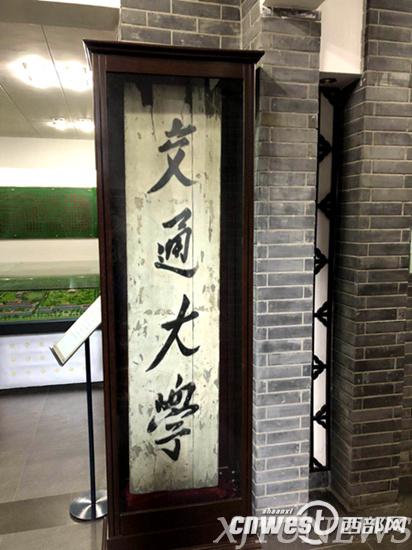 交通大學
shaanxi
cnwest西部网
XJTUNEWS